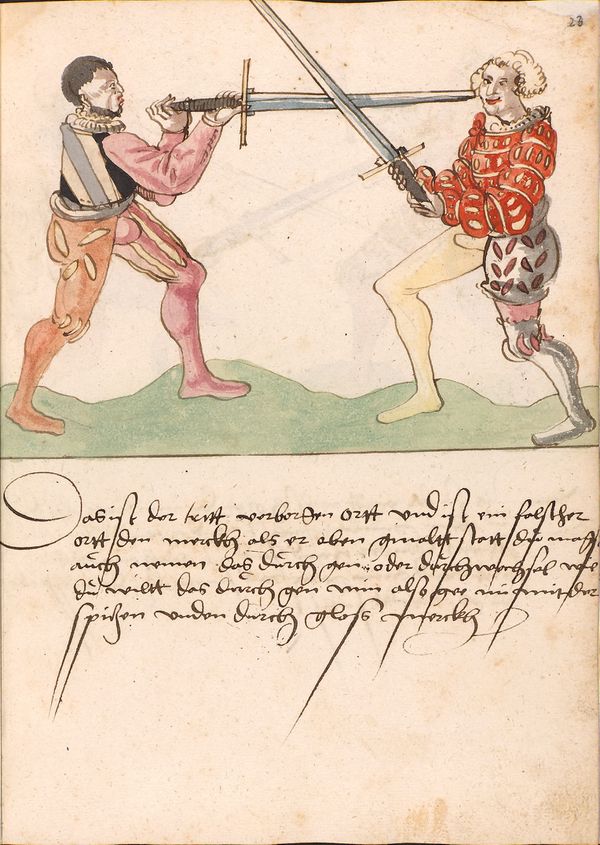 23
Das ist der tritt verborgen ortt vnd ist ein falscher
ortt den merckh als er oben gmaltt statt du magst
auch nemen das durch gen oder durchwechsel wie
du wiltt das durch gen nim also gee im mit der
spitzen vnden durch gloss merckh